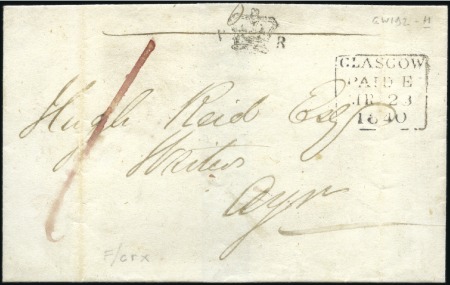 GW192-H
R
GLASGOW
PAID E
MR 23
1840
1
Hugh Reid Esqr
Writer
Ayr
F/crx